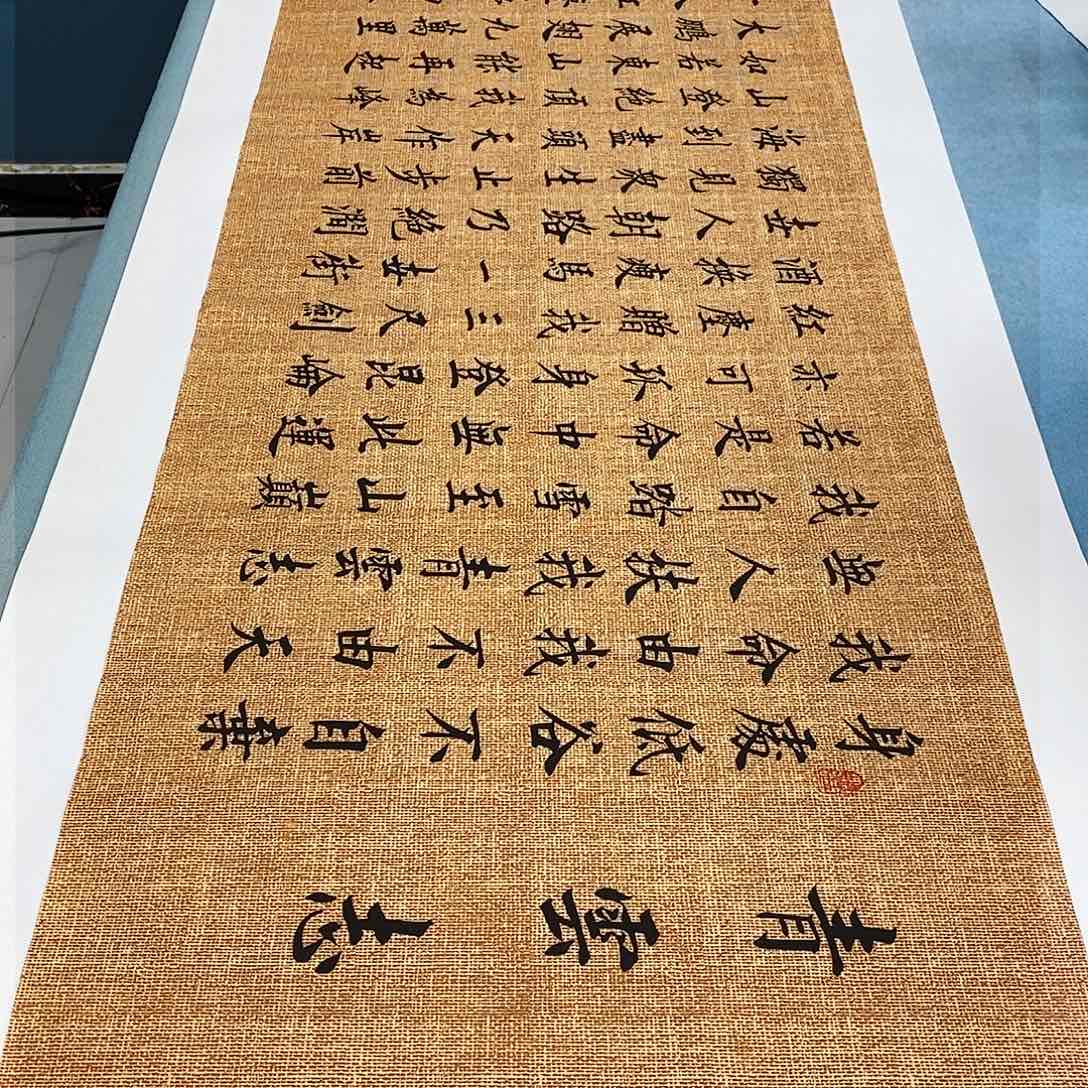 青雲志
身處低谷不自棄
我命由我不由天
無人扶我青雲志
我自踏雪至山巔
若是命中無此運
亦可孤身登昆崙
紅塵贈我三尺劍
酒俠瘦馬一世術
世人朝路乃絕澗
獨見衆生止步前
海到盡頭天作岸
山登絕頂我為峰
如若東山能再起
大鵬展翅九萬里